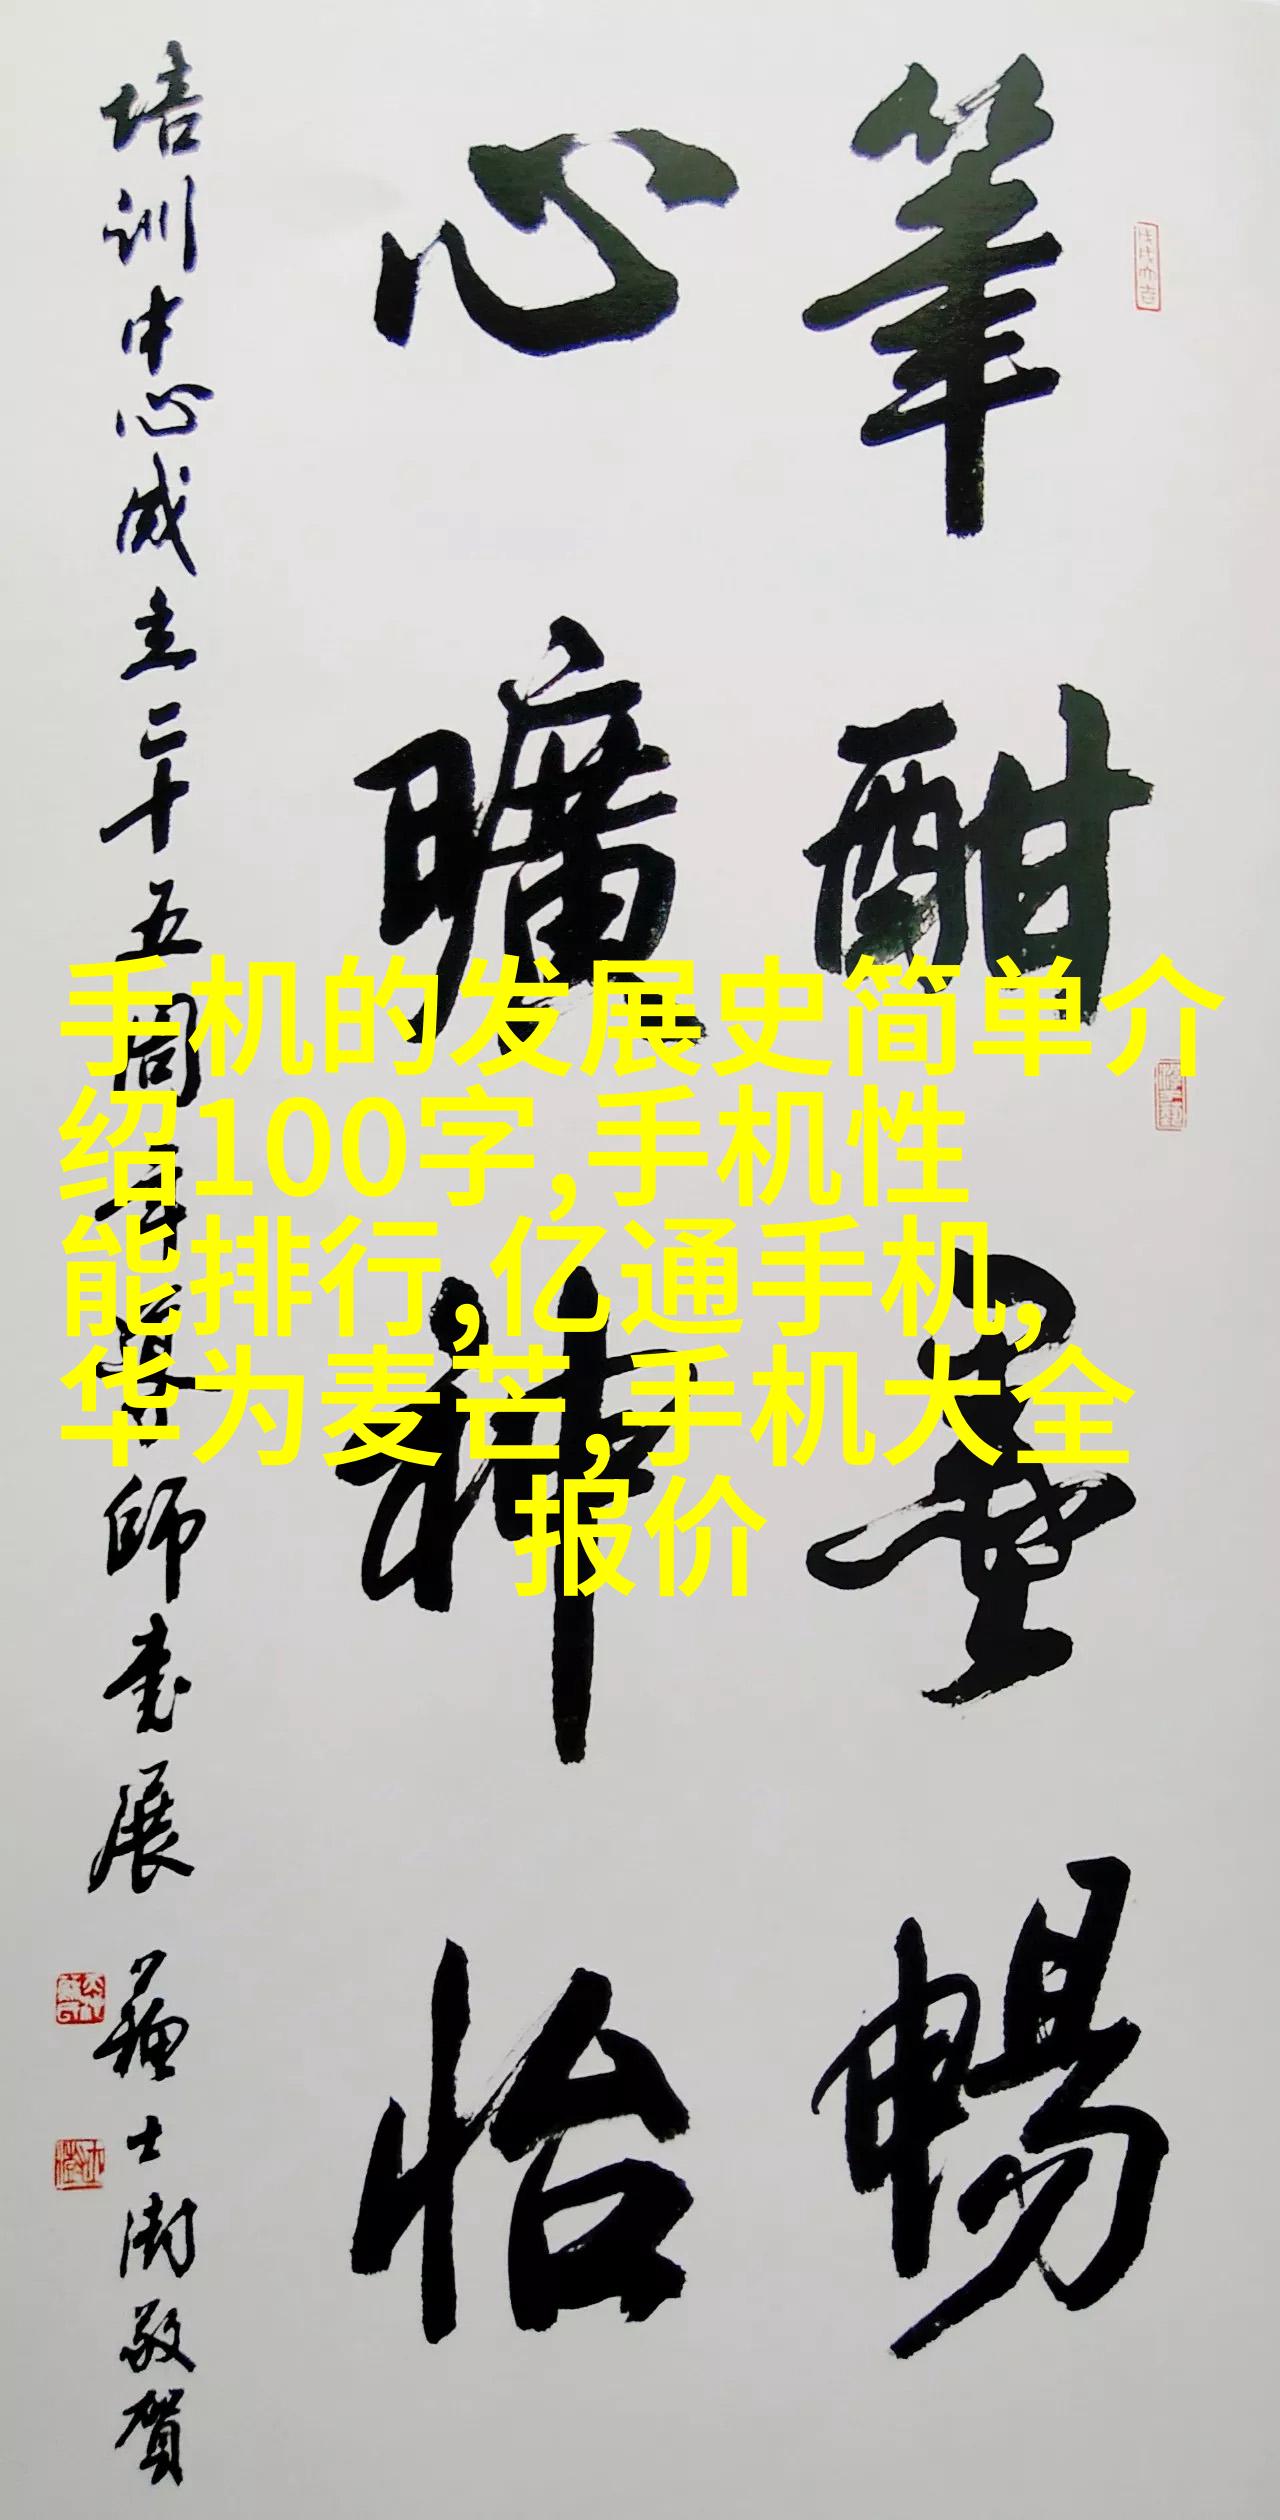 筆酣墨暢
心曠神怡
培训中心成立二十五周年導師書展
蘇士澍敬賀
手机的发展史简单介
绍100字,手机性
能排行,亿通手机,
华为麦芒,手机大全
报价